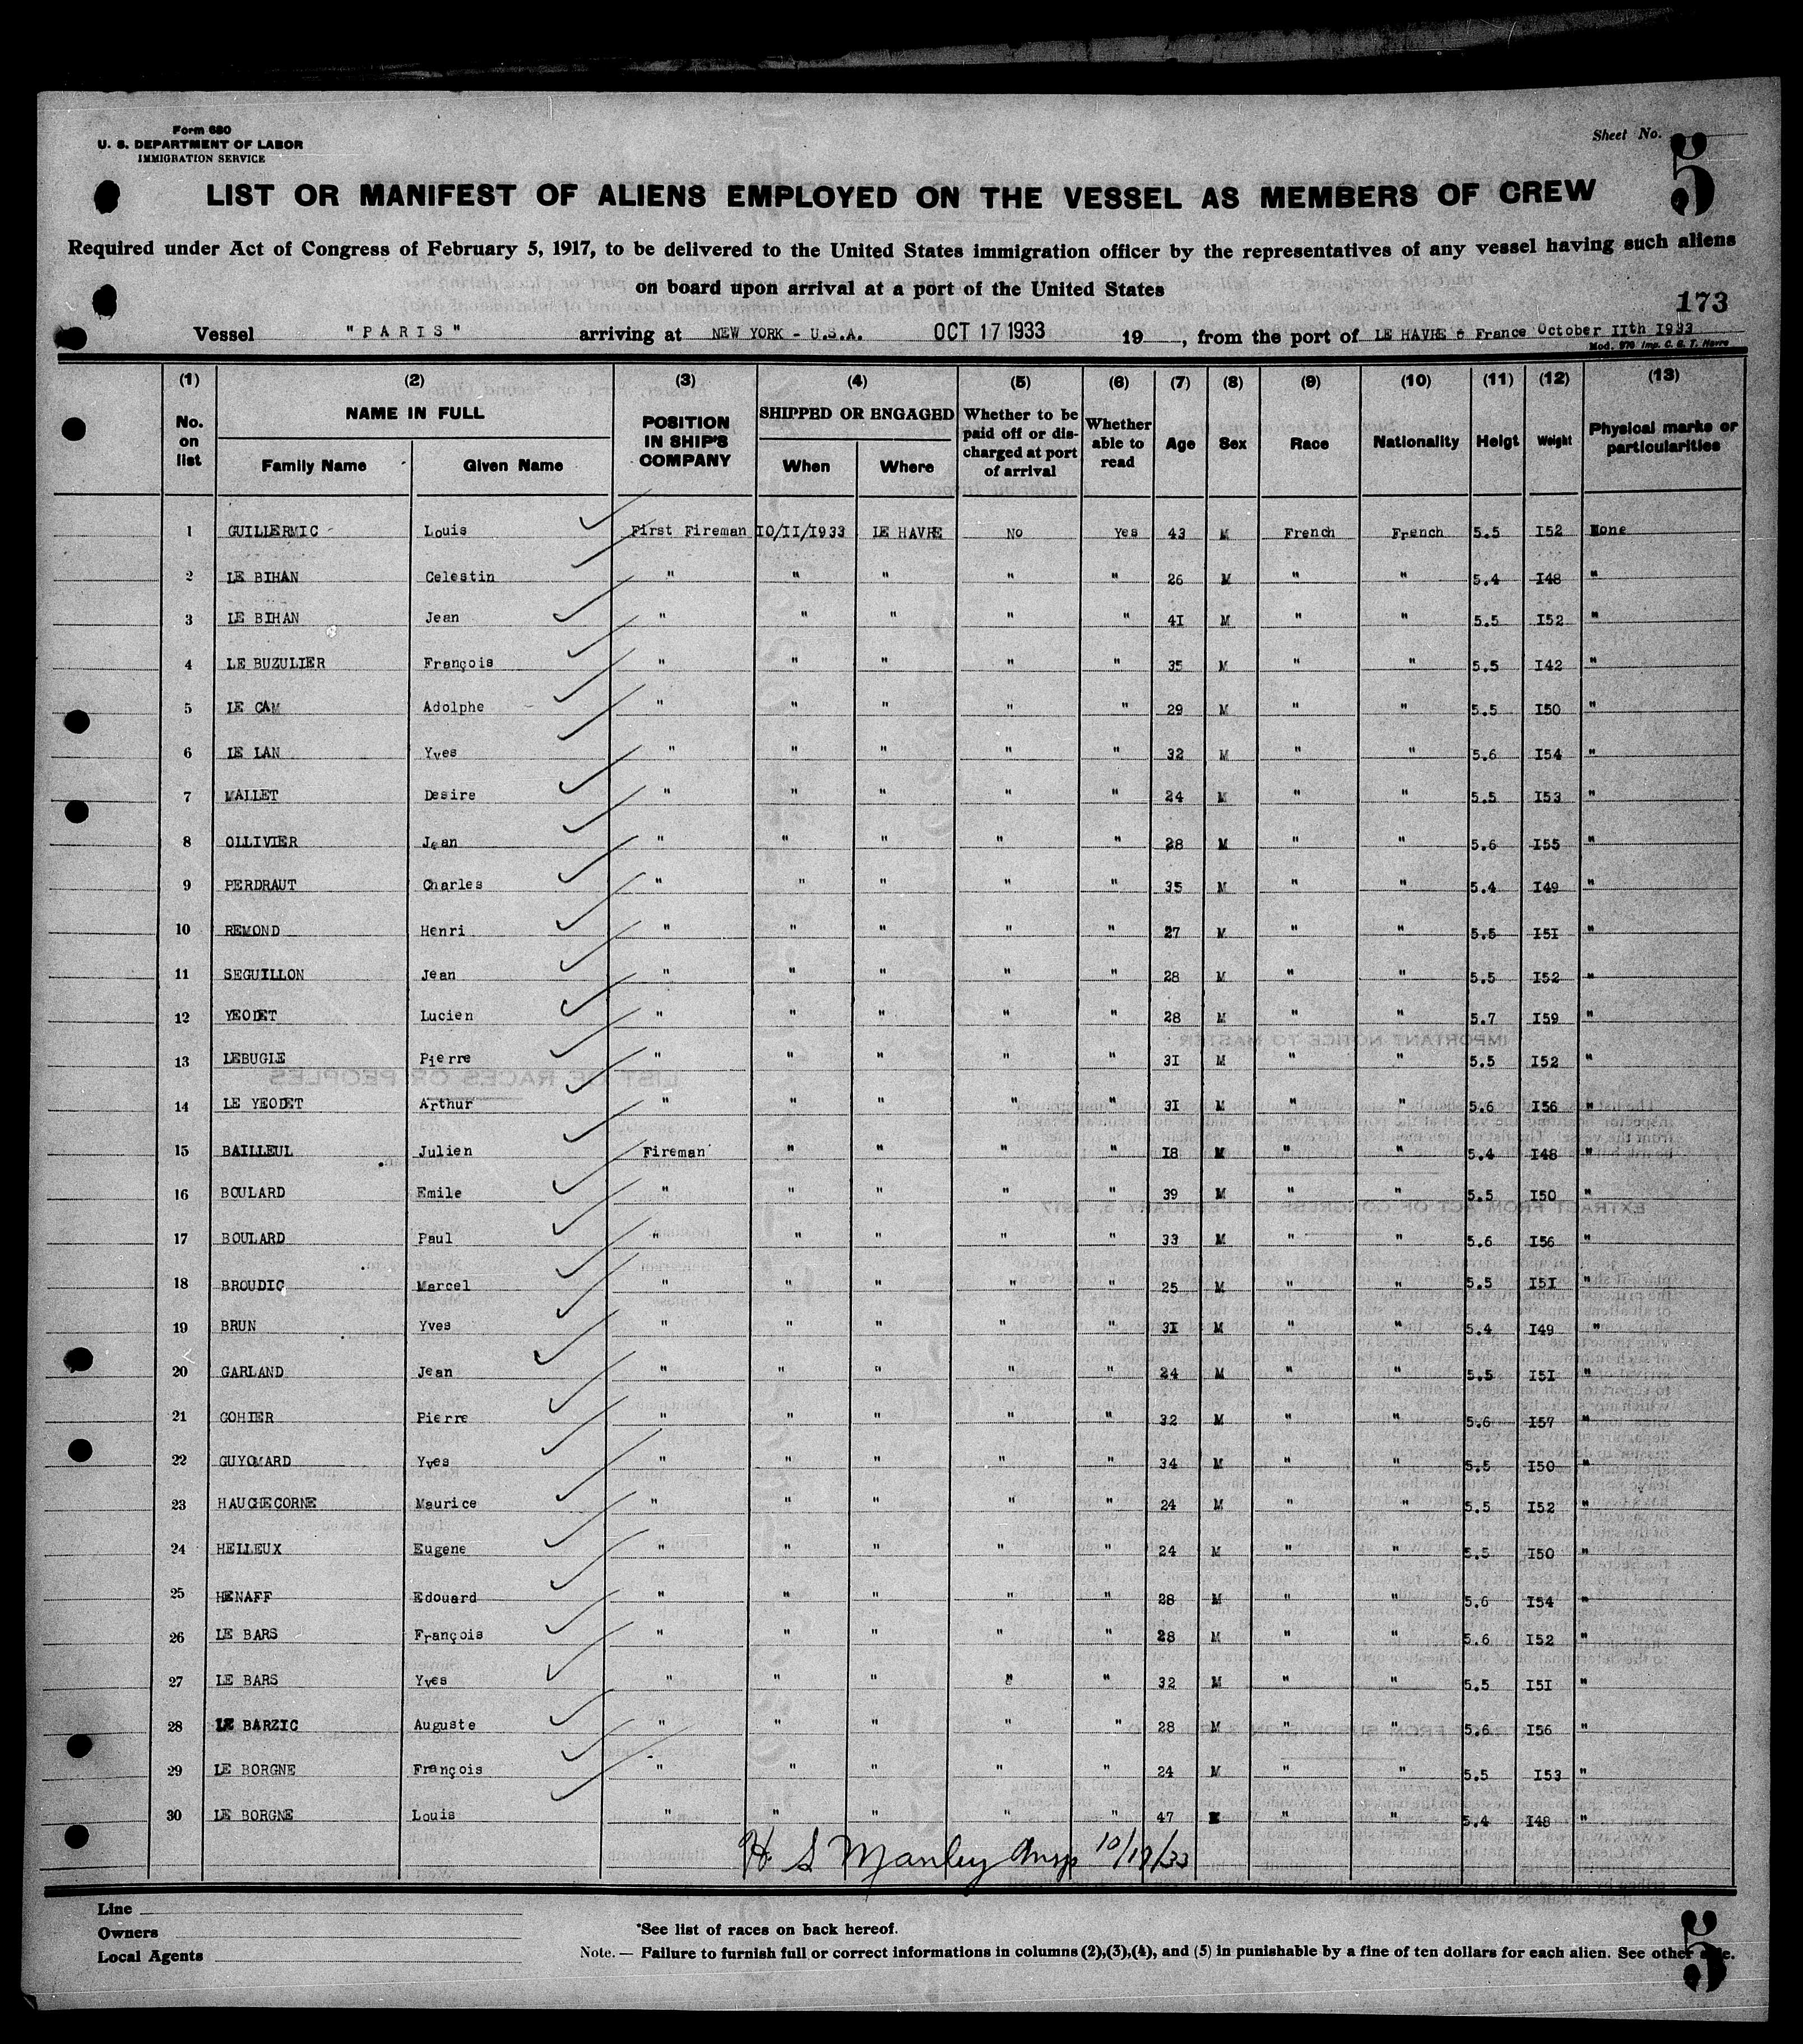 Form 680
U. S. DEPARTMENT OF LABOR
IMMIGRATION SERVICE
Sheet No. 5
LIST OR MANIFEST OF ALIENS EMPLOYED ON THE VESSEL AS MEMBERS OF CREW
Required under Act of Congress of February 5, 1917, to be delivered to the United States immigration officer by the representatives of any vessel having such aliens
on board upon arrival at a port of the United States
173
Vessel "PARIS" arriving at NEW YORK - U.S.A. OCT 17 1933 19 , from the port of LE HAVRE France October IIth I933
Mod. 976 Imp. C. G. T. Havre
(1) (2) (3) (4) (5) (6) (7) (8) (9) (10) (11) (12) (13)
No. on list NAME IN FULL Family Name Given Name POSITION IN SHIP'S COMPANY SHIPPED OR ENGAGED When Where Whether to be paid off or discharged at port of arrival Whether able to read Age Sex Race Nationality Heigt Weight Physical marks or particularities
1 GUILLERMIC Louis First Fireman IO/II/I933 LE HAVRE No Yes 43 M French French 5.5 I52 None
2 LE BIHAN Celestin " " " " " 26 M " " 5.4 I48 "
3 LE BIHAN Jean " " " " " 4I M " " 5.5 I52 "
4 LE BUZULIER François " " " " " 35 M " " 5.5 I42 "
5 LE CAM Adolphe " " " " " 29 M " " 5.5 I50 "
6 LE LAN Yves " " " " " 32 M " " 5.6 I54 "
7 MALLET Desire " " " " " 24 M " " 5.5 I53 "
8 OLLIVIER Jean " " " " " 28 M " " 5.6 I55 "
9 PERDRAUT Charles " " " " " 35 M " " 5.4 I49 "
10 REMOND Henri " " " " " 27 M " " 5.5 I5I "
11 SEGUILLON Jean " " " " " 28 M " " 5.5 I52 "
12 YEODET Lucien " " " " " 28 M " " 5.7 I59 "
13 LEBUGLE Pierre " " " " " 3I M " " 5.5 I52 "
14 LE YEODET Arthur " " " " " 3I M " " 5.6 I56 "
15 BAILLEUL Julien Fireman " " " " I8 M " " 5.4 I48 "
16 BOULARD Emile " " " " " 39 M " " 5.5 I50 "
17 BOULARD Paul " " " " " 33 M " " 5.6 I56 "
18 BROUDIC Marcel " " " " " 25 M " " 5.5 I5I "
19 BRUN Yves " " " " " 3I M " " 5.4 I49 "
20 GARLAND Jean " " " " " 24 M " " 5.5 I5I "
21 GOHIER Pierre " " " " " 32 M " " 5.6 I57 "
22 GUYOMARD Yves " " " " " 34 M " " 5.5 I50 "
23 HAUCHECORNE Maurice " " " " " 24 M " " 5.5 I52 "
24 HELLEUX Eugene " " " " " 24 M " " 5.5 I50 "
25 HENAFF Edouard " " " " " 28 M " " 5.6 I54 "
26 LE BARS François " " " " " 28 M " " 5.6 I52 "
27 LE BARS Yves " " " " " 32 M " " 5.5 I5I "
28 LE BARZIC Auguste " " " " " 28 M " " 5.6 I56 "
29 LE BORGNE François " " " " " 24 M " " 5.5 I53 "
30 LE BORGNE Louis " " " " " 47 M " " 5.4 I48 "
H S Manley Insp 10/17/33
Line
Owners
Local Agents
*See list of races on back hereof.
Note. — Failure to furnish full or correct informations in columns (2),(3),(4), and (5) in punishable by a fine of ten dollars for each alien. See other side.
5